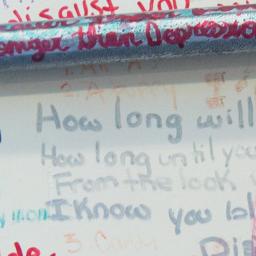 disgust you
stronger than Depression
How long will
How long until you
From the look
I Know you bl
3. Candy
Dis